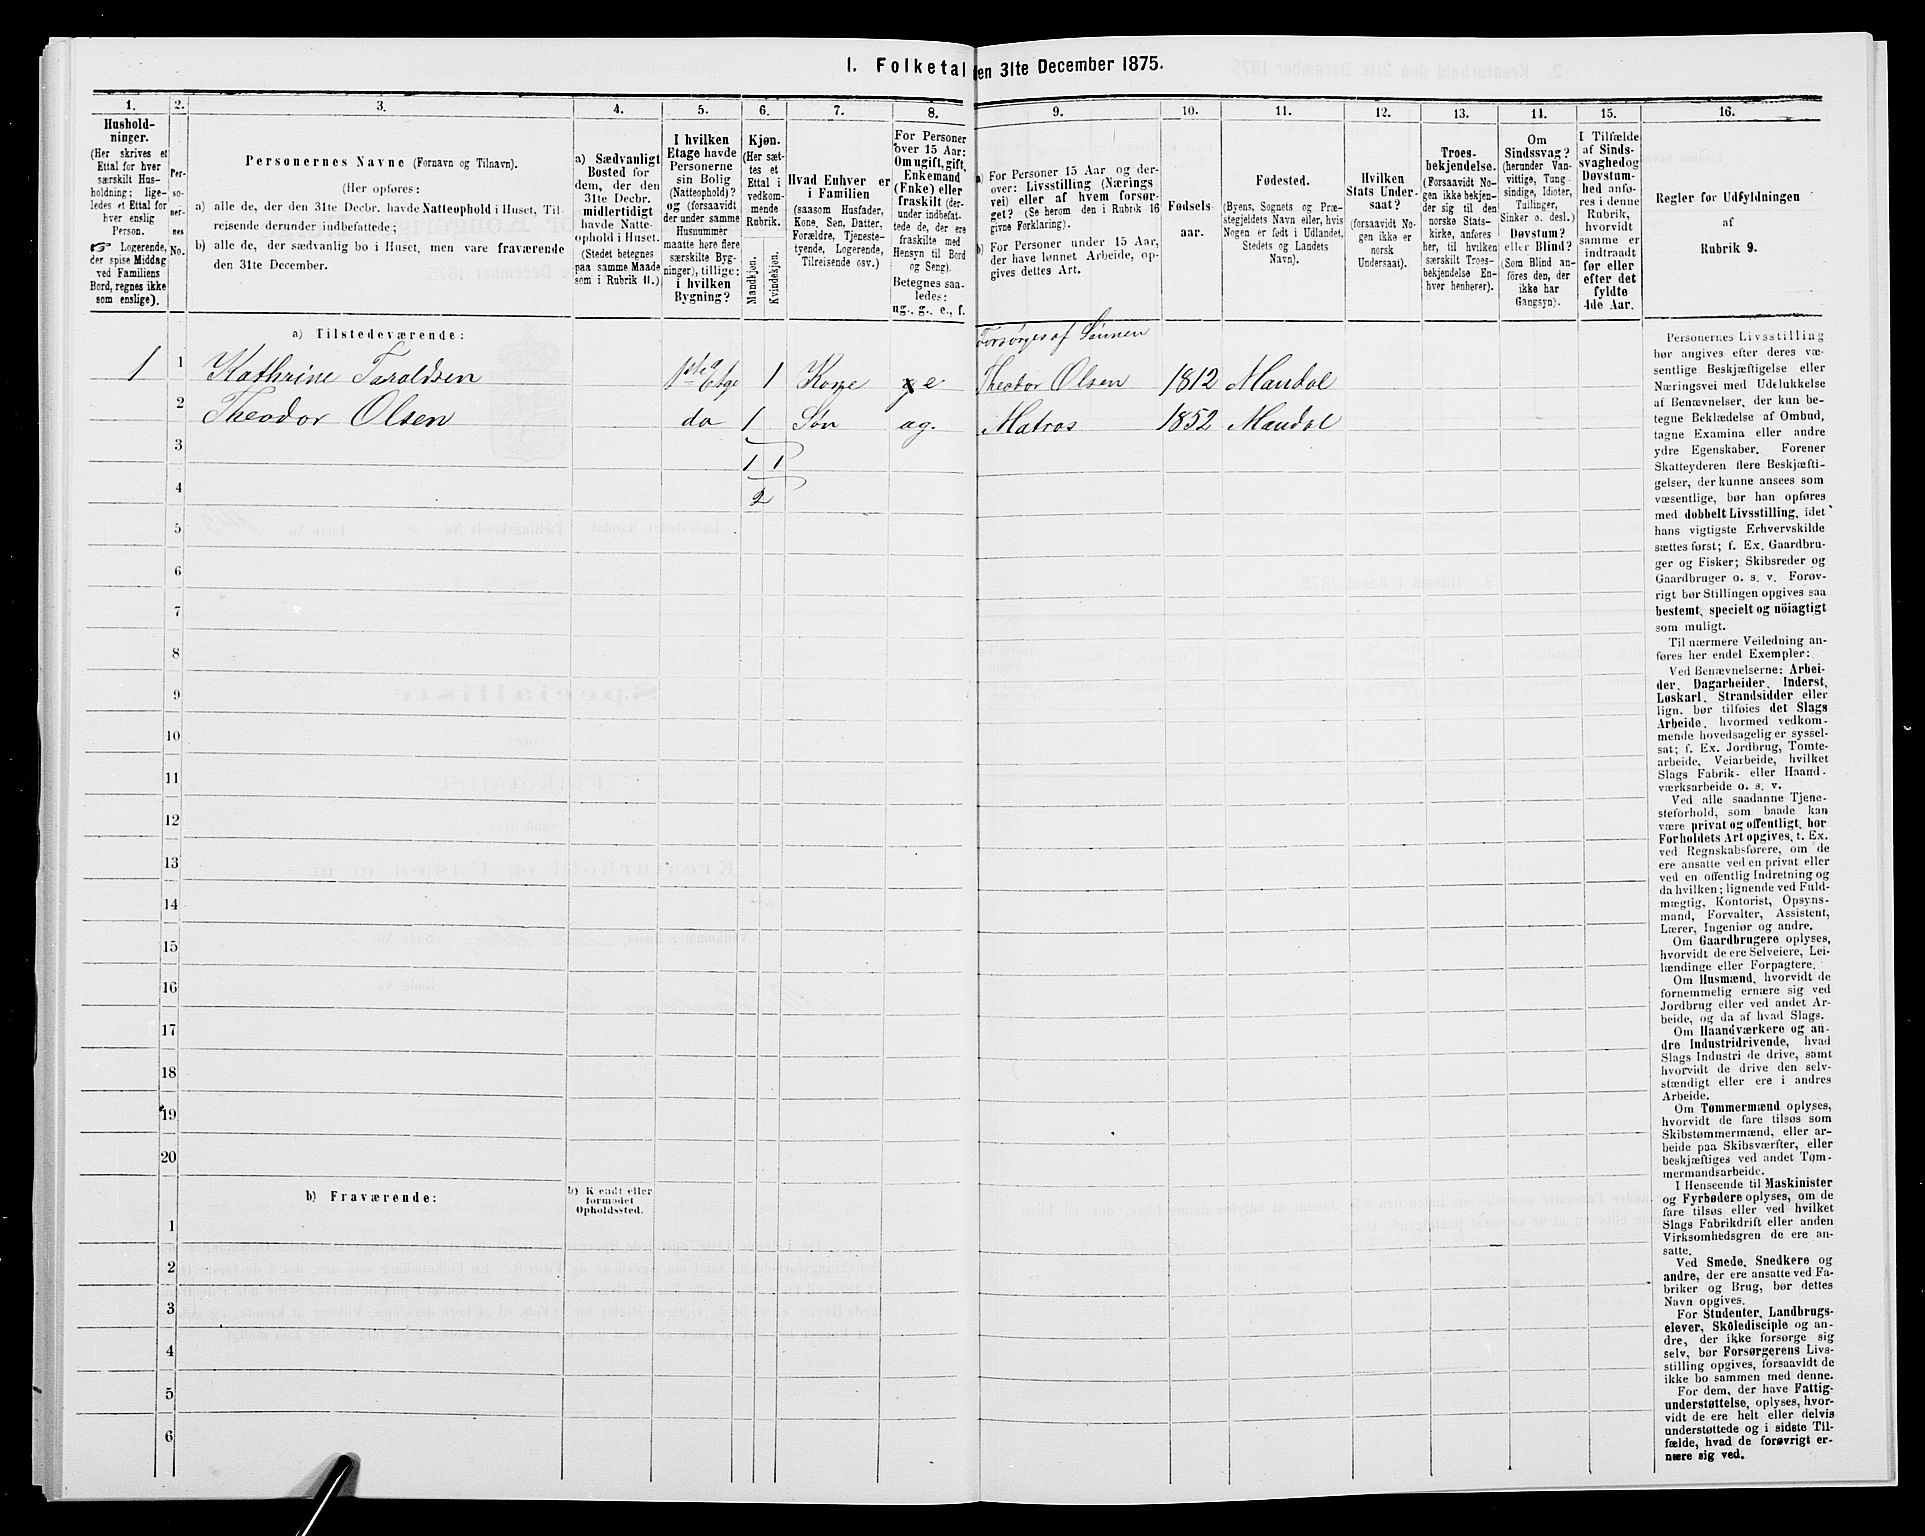 1. Folketal den 31te December 1875.
1. 2. 3. 4. 5. 6. 7. 8. 9. 10. 11. 12. 13. 14. 15. 16.
Hushold-
ninger.
(Her skrives et
Ettal for hver
særskilt Hus-
holdning; lige-
ledes et Ettal for
hver enslig
Person.
☞ Logerende,
der spise Middag
ved Familiens
Bord, regnes ikke
som enslige).
Per-
so-
ner-
nes
No.
Personernes Navne (Fornavn og Tilnavn).
(Her opføres:
a) alle de, der den 31te Decbr. havde Natteophold i Huset, Til-
reisende derunder indbefattede;
b) alle de, der sædvanlig bo i Huset, men vare fraværende
den 31te December.
a) Sædvanligt
Bosted for
dem, der den
31te Decbr.
midlertidigt
havde Natte-
ophold i Huset.
(Stedet betegnes
paa samme Maade
som i Rubrik 11.)
I hvilken
Etage havde
Personerne
sin Bolig
(Natteophold)?
og (forsaavidt
der under samme
Husnummer
maatte høre flere
særskilte Byg-
ninger), tillige:
i hvilken
Bygning?
Kjøn.
(Her sæt-
tes et
Ettal i
vedkom-
mende
Rubrik.
Mandkjøn.
Kvindekjøn.
Hvad Enhver er
i Familien
(saasom Husfader,
Kone, Søn, Datter,
Forældre, Tjeneste-
tyende, Logerende,
Tilreisende osv.)
For Personer
over 15 Aar:
Om ugift, gift,
Enkemand
(Enke) eller
fraskilt (der-
under indbefat-
tede de, der ere
fraskilte med
Hensyn til Bord
og Seng).
Betegnes saa-
ledes:
ug., g., e., f.
a) For Personer 15 Aar og der-
over: Livsstilling (Nærings
vei) eller af hvem forsør-
get? (Se herom den i Rubrik 16
givne Forklaring).
b) For Personer under 15 Aar,
der have lønnet Arbeide, op-
gives dettes Art.
Fødsels-
aar.
Fødested.
(Byens, Sognets og Præ-
stegjeldets Navn eller, hvis
Nogen er født i Udlandet,
Stedets og Landets
Navn).
Hvilken
Stats Under-
saat?
(forsaavidt No-
gen ikke er
norsk
Undersaat).
Troes-
bekjendelse.
(Forsaavidt No-
gen ikke bekjen-
der sig til den
norske Stats-
kirke, anføres
her, til hvilken
særskilt Troes-
bekjendelse En-
hver henhører).
Om
Sindssvag?
(herunder Van-
vittige, Tung-
sindige, Idioter,
Tullinger,
Sinker o. desl.)
Døvstum?
eller Blind?
(Som Blind an-
føres den, der
ikke har
Gangsyn).
I Tilfælde
af Sinds-
svaghed og
Døvstum-
hed anfø-
res i denne
Rubrik,
hvorvidt
samme er
indtraadt
før eller
efter det
fyldte
4de Aar.
Regler for Udfyldningen
af
Rubrik 9.
a) Tilstedeværende:
Forsørges af Sønnen
1 1 Kathrine Taraldsen 1ste Etge 1 Kone g e Theodor Olsen 1812 Mandal
2 Theodor Olsen do 1 Søn ug. Matros 1852 Mandal
3 1 1
4 2
5
6
7
8
9
10
11
12
13
14
15
16
17
18
19
20
b) Fraværende:
b) Kjendt eller
formodet
Opholdssted.
1
2
3
4
5
6
Personernes Livsstilling
bør angives efter deres væ-
sentlige Beskjæftigelse eller
Næringsvei med Udelukkelse
af Benævnelser, der kun be-
tegne Beklædelse af Ombud,
tagne Examina eller andre
ydre Egenskaber. Forener
Skatteyderen flere Beskjæfti-
gelser, der kunne ansees som
væsentlige, bør han opføres
med dobbelt Livsstilling, idet
hans vigtigste Erhvervskilde
sættes først; f. Ex. Gaardbru-
ger og Fisker; Skibsreder og
Gaardbruger o. s. v. Forøv-
rigt bør Stillingen opgives saa
bestemt, specielt og nöiagtigt
som muligt.
Til nærmere Veiledning an-
føres her endel Exempler:
Ved Benævnelserne: Arbei-
der, Dagarbeider, Inderst,
Løskarl, Strandsidder eller
lign. bør tilføies det Slags
Arbeide, hvormed vedkom-
mende hovedsagelig er syssel-
sat; f. Ex. Jordbrug, Tomte-
arbeide, Veiarbeide, hvilket
Slags Fabrik- eller Haand-
værksarbeide o. s. v.
Ved alle saadanne Tjene-
steforhold, som baade kan
være privat og offentligt, bør
Forholdets Art opgives, t. Ex.
ved Regnskabsførere, om de
ere ansatte ved en privat eller
ved en offentlig Indretning og
da hvilken; lignende ved Fuld-
mægtig, Kontorist, Opsyns-
mand, Forvalter, Assistent,
Lærer, Ingeniør og andre.
Om Gaardbrugere oplyses,
hvorvidt de ere Selveiere, Lei-
lændinge eller Forpagtere.
Om Husmænd, hvorvidt de
fornemmelig ernære sig ved
Jordbrug eller ved andet Ar-
beide, og da af hvad Slags.
Om Haandværkere og an-
dre Industridrivende, hvad
Slags Industri de drive, samt
hvorvidt de drive den selv-
stændigt eller ere i andres
Arbeide.
Om Tømmermænd oplyses,
hvorvidt de fare tilsøs som
Skibstømmermænd, eller ar-
beide paa Skibsværfter, eller
beskjæftiges ved andet Tøm-
mermandsarbeide.
I Henseende til Maskinister
og Fyrbødere oplyses, om de
fare tilsøs eller ved hvilket
Slags Fabrikdrift eller anden
Virksomhedsgren de ere an-
satte.
Ved Smede, Snedkere og
andre, der ere ansatte ved Fa-
briker og Brug, bør dettes
Navn opgives.
For Studenter, Landbrugs-
elever, Skôledisciple og an-
dre, der ikke forsørge sig
selv, bør Forsørgerens Livs-
stilling opgives, forsaavidt de
ikke bo sammen med denne.
For dem, der have Fattig-
understøttelse, oplyses, hvor-
vidt de ere helt eller delvis
understøttede og i sidste Til-
fælde, hvad de forøvrigt er-
nære sig ved.